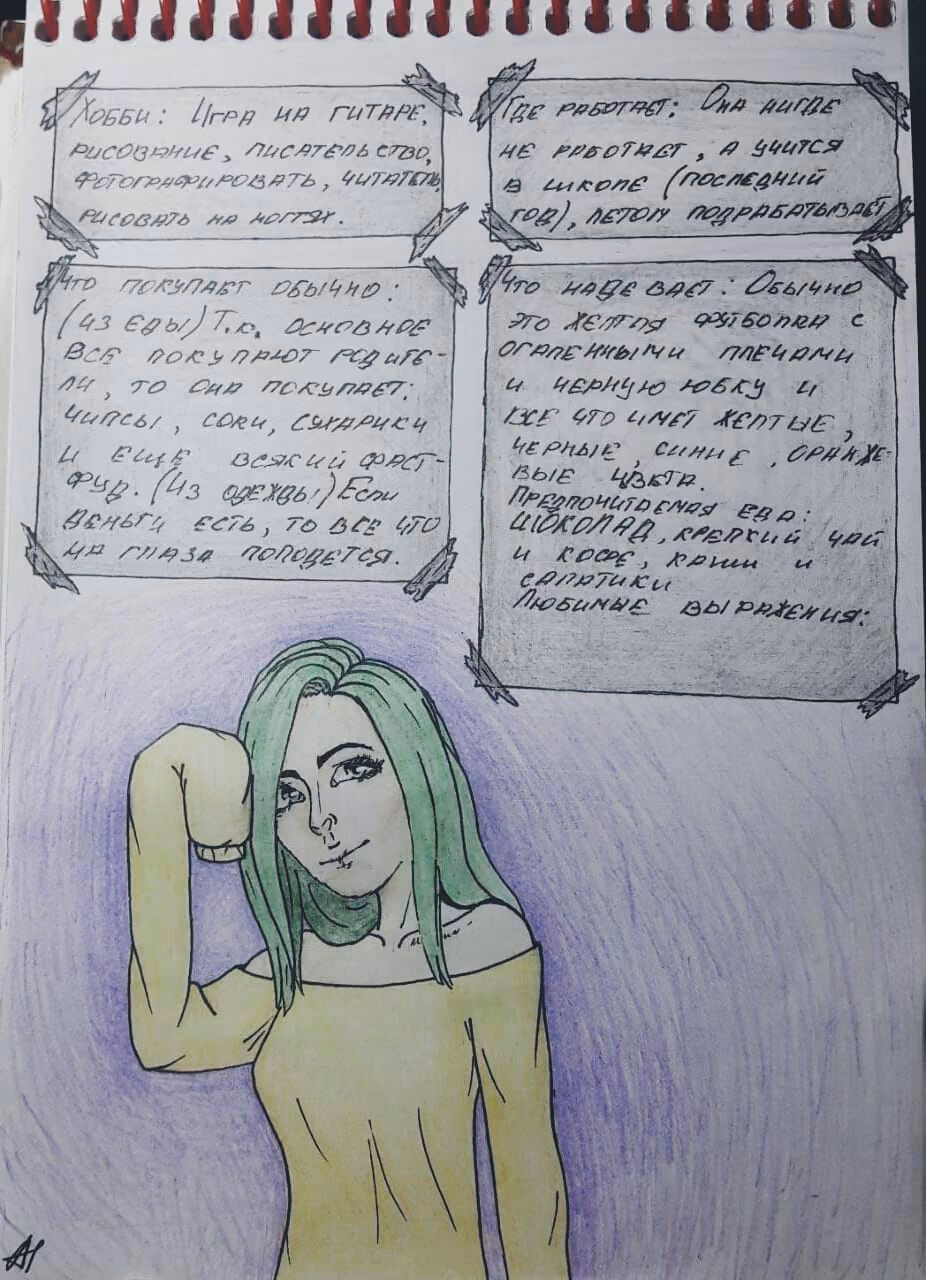 Хобби: Игра на гитаре,
рисование, писательство,
фотографировать, читатель,
рисовать на ногтях.
Где работает: Она нигде
не работает, а учится
в школе (последний
год), летом подрабатывает
Что покупает обычно:
(из еды) Т.к. основное
все покупают родите-
ли, то она покупает:
чипсы, соки, сухарики
и еще всякий фаст-
фуд. (Из одежды) Если
деньги есть, то все что
на глаза пополется.
Что надевает: Обычно
это желтля футболка с
огаленными плечами
и черную юбку и
все что имет желтые,
черные, синие, оранже-
вые цвета.
Предпочитаемая еда:
шоколад, крепкий чай
и кофе, каши и
салатики
Любимые выражения: